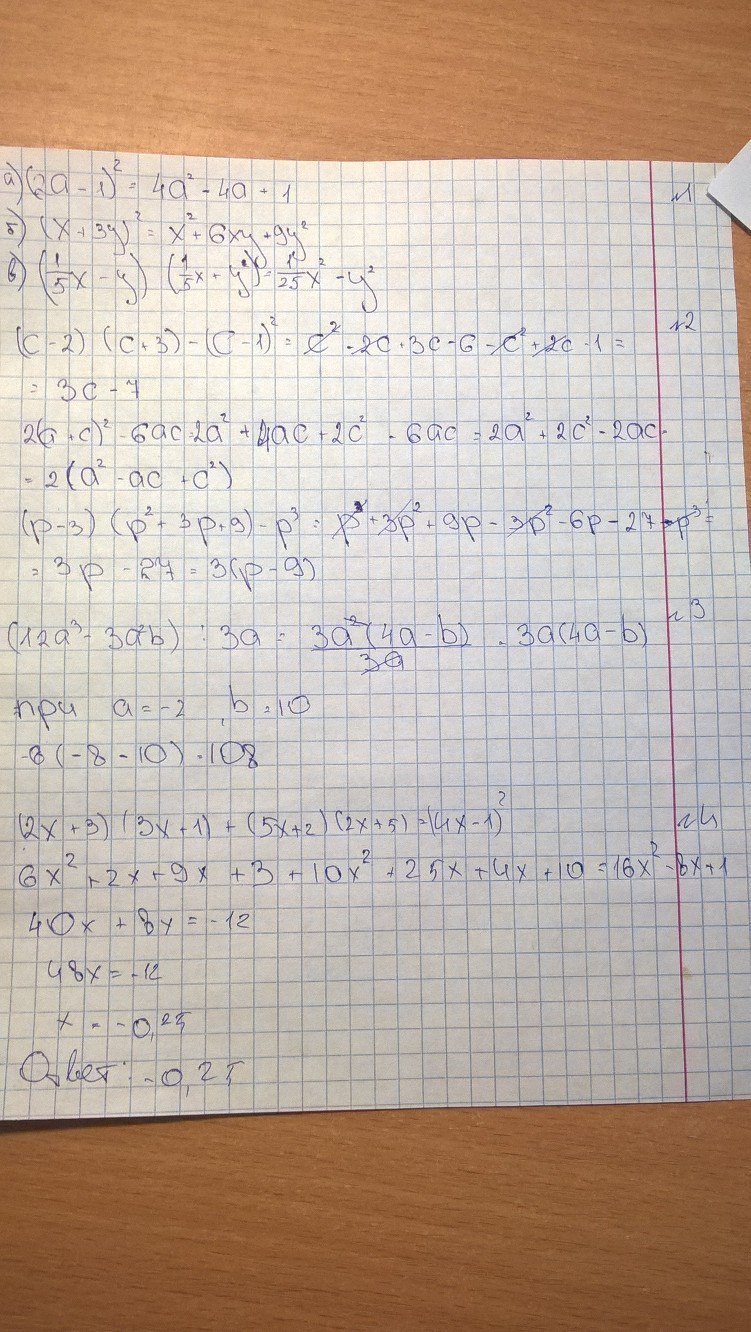 а) (2a - 1)² = 4a² - 4a + 1 №1
б) (x + 3y)² = x² + 6xy + 9y²
в) (1/5x - y) (1/5x + y) = 1/25x² - y²
(c - 2) (c + 3) - (c - 1)² = c² - 2c + 3c - 6 - c² + 2c - 1 = №2
= 3c - 7
2(a + c)² - 6ac = 2a² + 4ac + 2c² - 6ac = 2a² + 2c² - 2ac =
= 2(a² - ac + c²)
(p - 3) (p² + 3p + 9) - p³ = p³ + 3p² + 9p - 3p² - 6p - 27 - p³ =
= 3p - 27 = 3(p - 9)
(12a³ - 3a²b) : 3a = 3a²(4a - b)/3a = 3a(4a - b) №3
при a = -2, b = 10
-6(-8 - 10) = 108
(2x + 3) (3x + 1) + (5x + 2) (2x + 5) = (4x - 1)² №4
6x² + 2x + 9x + 3 + 10x² + 25x + 4x + 10 = 16x² - 8x + 1
40x + 8x = -12
48x = -12
x = -0,25
Ответ: -0,25